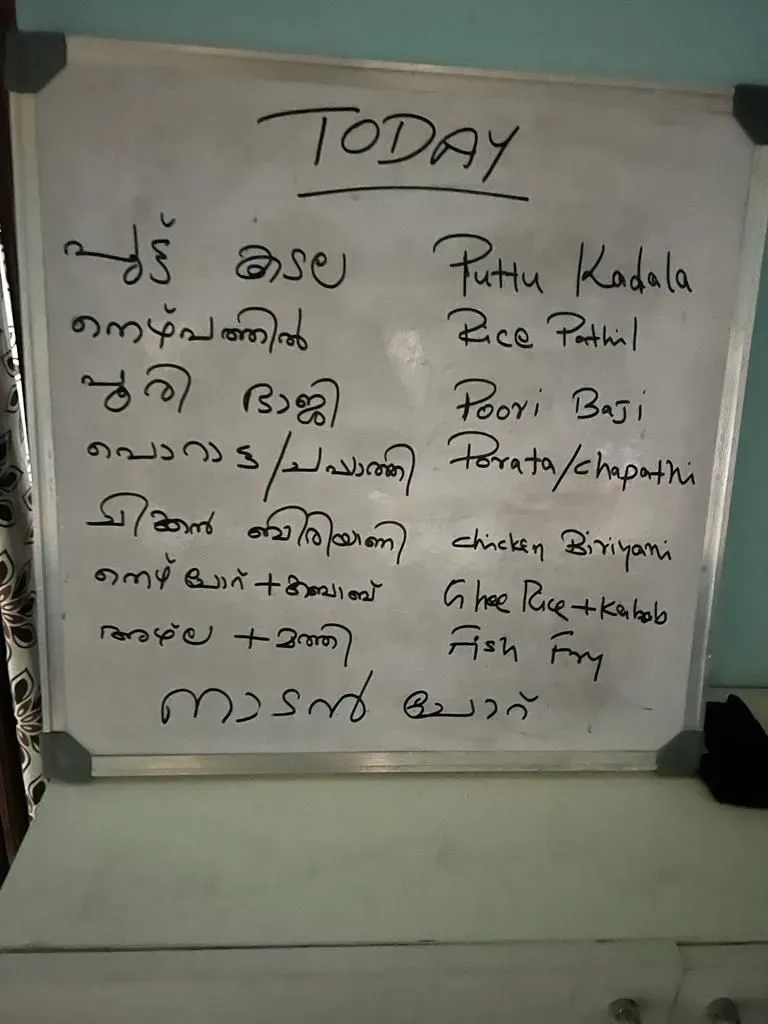 TODAY
പുട്ട് കടല Puttu Kadala
നെയ്പത്തിൽ Rice Pathil
പൂരി ഭാജി Poori Baji
പൊറാട്ട/ചപ്പാത്തി Porata/chapathi
ചിക്കൻ ബിരിയാണി chicken Biriyani
നെയ് ചോറ് + കബാബ് Ghee Rice + Kabab
അയ്ല + മത്തി Fish Fry
നാടൻ ചോറ്